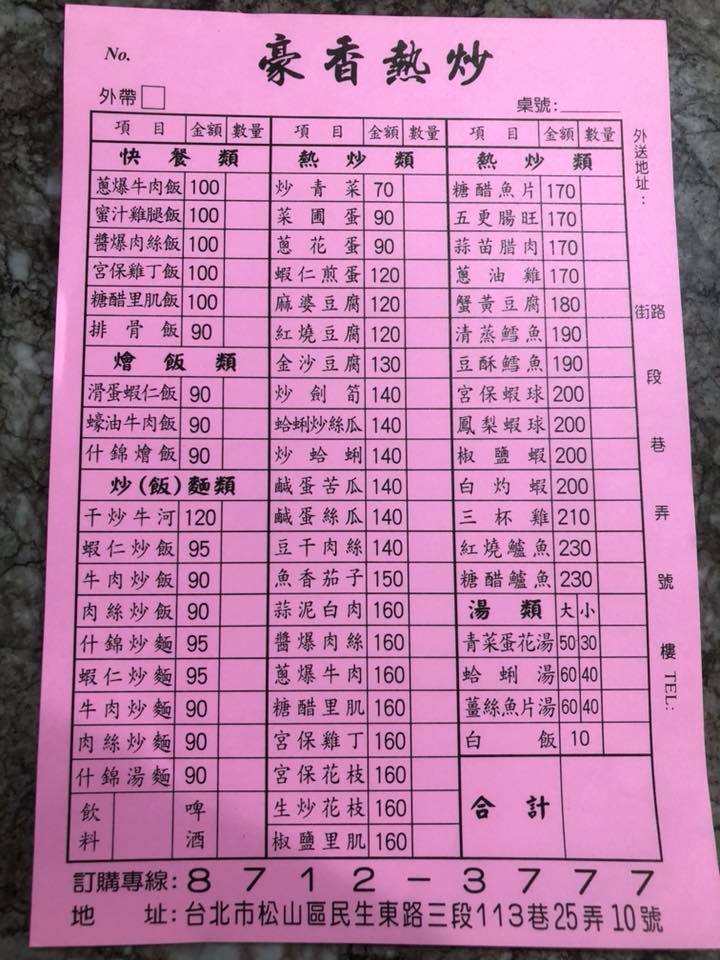 No.
豪香熱炒
外帶
桌號:
項目 金額 數量
快餐類
蔥爆牛肉飯 100
蜜汁雞腿飯 100
醬爆肉絲飯 100
宮保雞丁飯 100
糖醋里肌飯 100
排骨飯 90
燴飯類
滑蛋蝦仁飯 90
蠔油牛肉飯 90
什錦燴飯 90
炒(飯)麵類
干炒牛河 120
蝦仁炒飯 95
牛肉炒飯 90
肉絲炒飯 90
什錦炒麵 95
蝦仁炒麵 95
牛肉炒麵 90
肉絲炒麵 90
什錦湯麵 90
飲料 啤酒
項目 金額 數量
熱炒類
炒青菜 70
菜圃蛋 90
蔥花蛋 90
蝦仁煎蛋 120
麻婆豆腐 120
紅燒豆腐 120
金沙豆腐 130
炒劍筍 140
蛤蜊炒絲瓜 140
炒蛤蜊 140
鹹蛋苦瓜 140
鹹蛋絲瓜 140
豆干肉絲 140
魚香茄子 150
蒜泥白肉 160
醬爆肉絲 160
蔥爆牛肉 160
糖醋里肌 160
宮保雞丁 160
宮保花枝 160
生炒花枝 160
椒鹽里肌 160
項目 金額 數量
熱炒類
糖醋魚片 170
五更腸旺 170
蒜苗腊肉 170
蔥油雞 170
蟹黃豆腐 180
清蒸鱈魚 190
豆酥鱈魚 190
宮保蝦球 200
鳳梨蝦球 200
椒鹽蝦 200
白灼蝦 200
三杯雞 210
紅燒鱸魚 230
糖醋鱸魚 230
湯類 大 小
青菜蛋花湯 50 30
蛤蜊湯 60 40
薑絲魚片湯 60 40
白飯 10
合計
外送地址: 街路 段 巷 弄 號 樓 TEL:
訂購專線:8712-3777
地址:台北市松山區民生東路三段113巷25弄10號